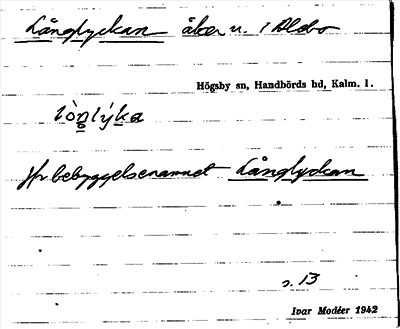 Långlyckan åker u. 1 Aldbo
Högsby sn, Handbörds hd, Kalm. l.
lòŋlýka
jfr bebyggelsenamnet Långlyckan
s. 13
Ivar Modéer 1942